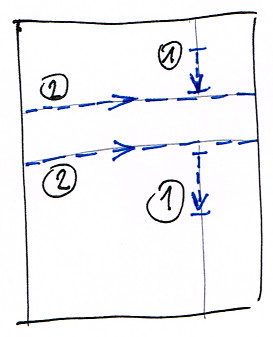 1
2
2
1